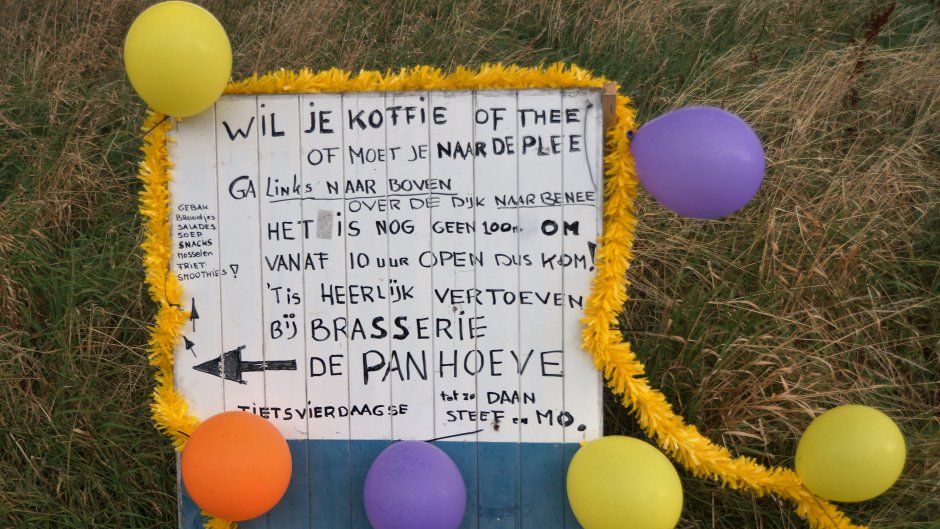 WIL JE KOFFIE OF THEE
OF MOET JE NAAR DE PLEE
GA LINKS NAAR BOVEN
OVER DE DIJK NAAR BENEE
HET IS NOG GEEN 100m OM
VANAF 10 UUR OPEN DUS KOM!
'TIS HEERLIJK VERTOEVEN
BIJ BRASSERIE
DE PANHOEVE
GEBAK
BROODJES
SALADES
SOEP
SNACKS
MOSSELEN
FRIET
SMOOTHIES!
FIETSVIERDAAGSE
tot zo DAAN
STEEF en MO.